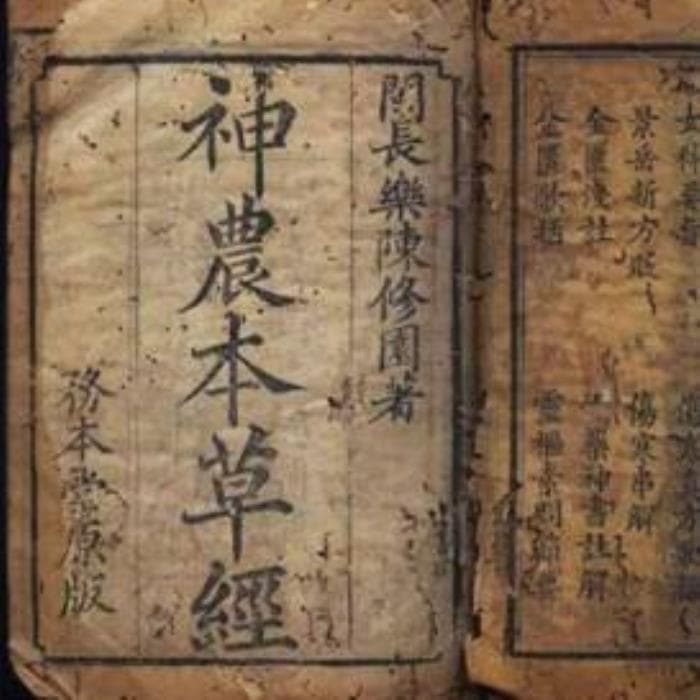 女科要旨
景岳新方砭 傷寒串解
金匱淺註 十藥神書註解
金匱歌括 靈樞素問節要
閩長樂陳修園著
神農本草經
務本堂原版